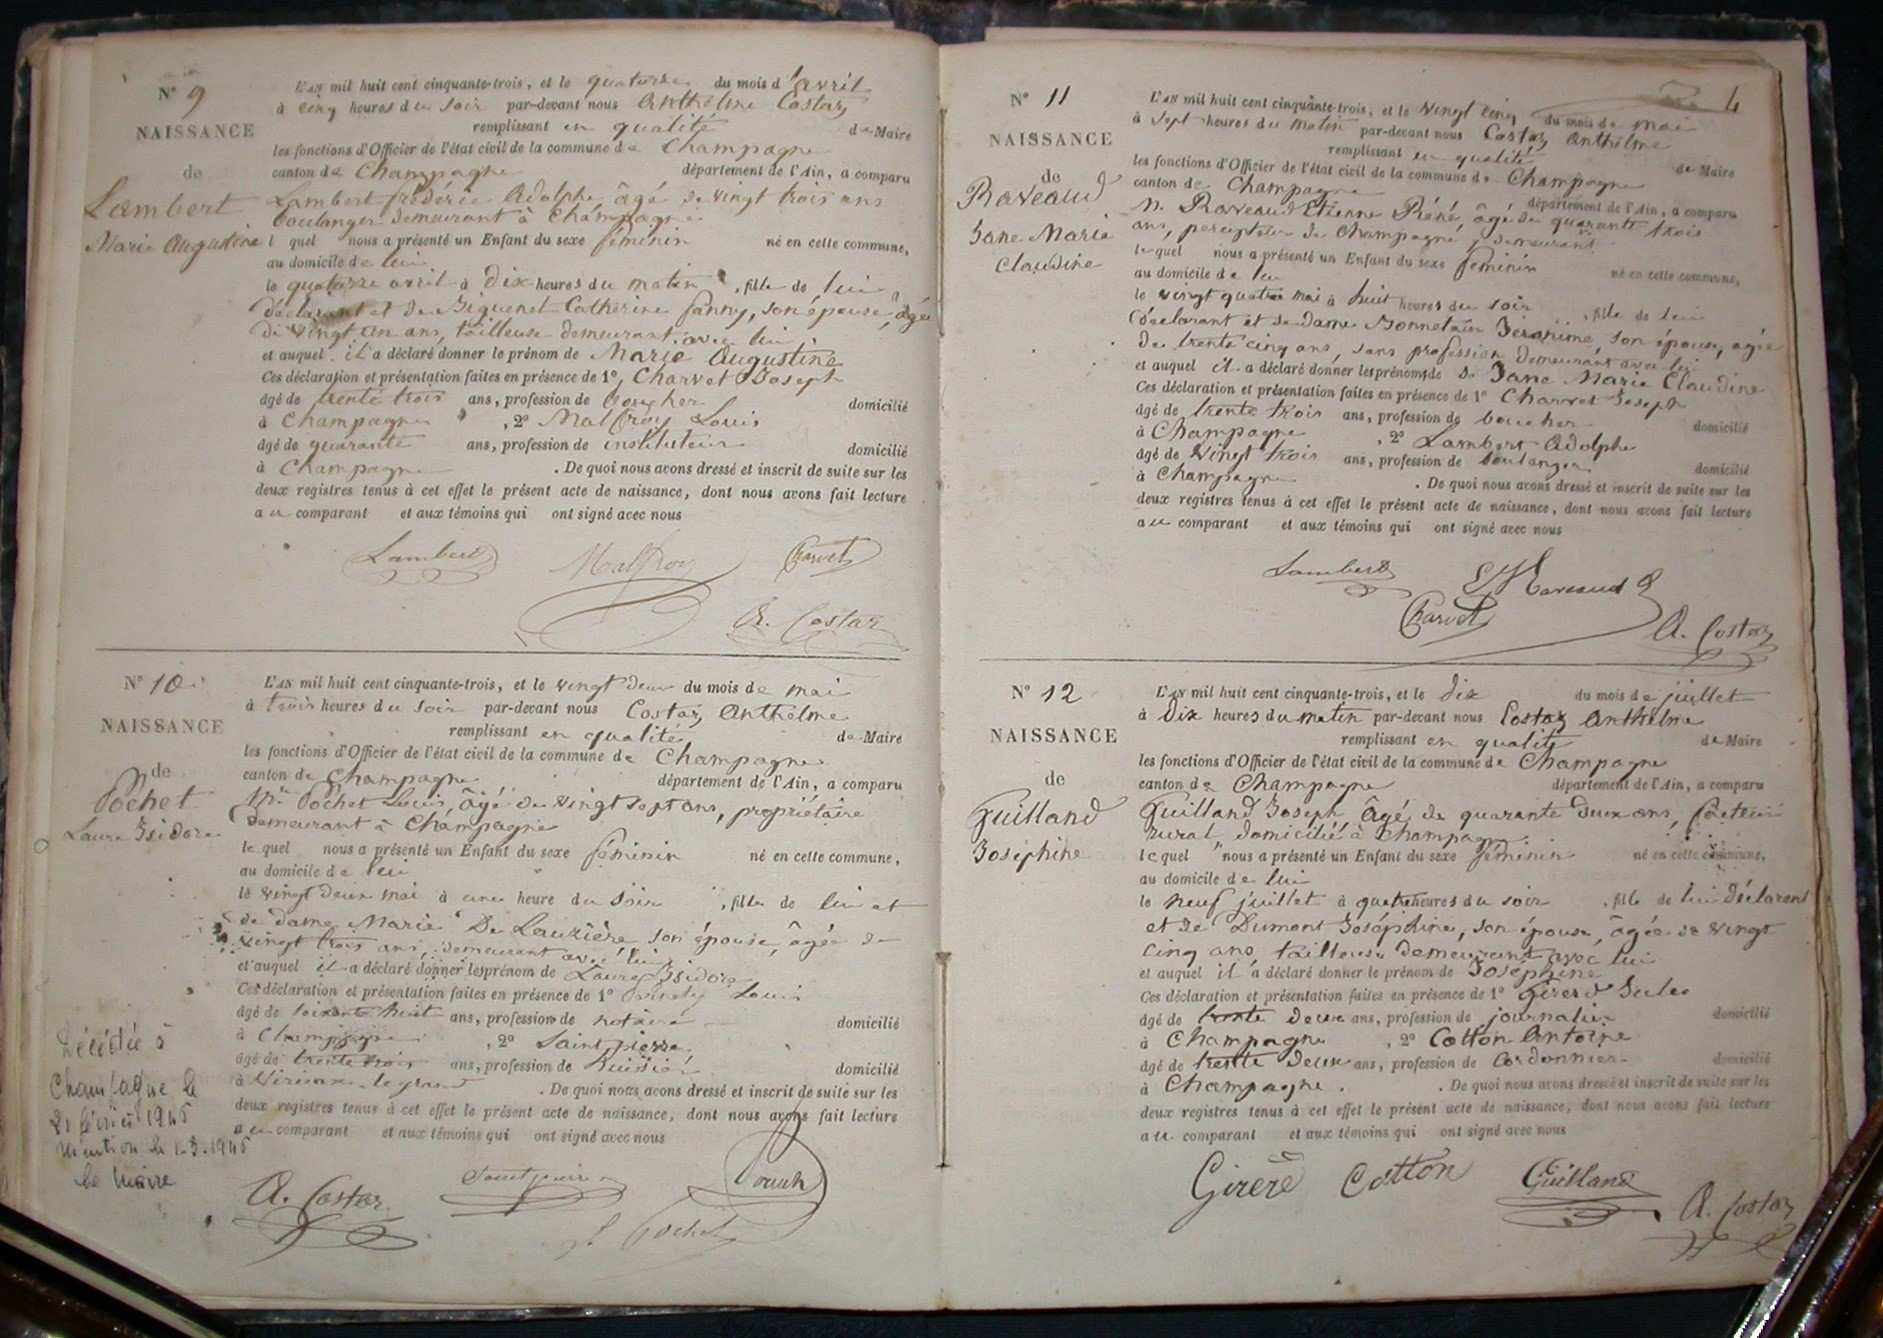 N° 9
NAISSANCE
de
Lambert
Marie Augustine
L'AN mil huit cent cinquante-trois, et le quatorze du mois d'avril
à cinq heures du soir par-devant nous Anthelme Costaz
remplissant en qualité de Maire
les fonctions d'Officier de l'état civil de la commune de Champagne
canton de Champagne département de l'Ain, a comparu
Lambert frédéric Adolphe âgé de vingt trois ans
boulanger demeurant à Champagne
lequel nous a présenté un Enfant du sexe féminin né en cette commune,
au domicile de lui
le quatorze avril à dix heures du matin, fille de lui
déclarant et de Biguenet Catherine fanny, son épouse, âgée
de vingt un ans, tailleuse demeurant avec lui
et auquel il a déclaré donner le prénom de Marie Augustine
Ces déclaration et présentation faites en présence de 1°, Charvet Joseph
âgé de trente trois ans, profession de boucher domicilié
à Champagne, 2° Malfroy Louis
âgé de quarante ans, profession de instituteur domicilié
à Champagne. De quoi nous avons dressé et inscrit de suite sur les
deux registres tenus à cet effet le présent acte de naissance, dont nous avons fait lecture
au comparant et aux témoins qui ont signé avec nous
Lambert Malfroy Charvet
A. Costaz
N° 10
NAISSANCE
de
Pochet
Laure Isidore
L'AN mil huit cent cinquante-trois, et le vingt deux du mois de mai
à trois heures du soir par-devant nous Costaz Anthelme
remplissant en qualité de Maire
les fonctions d'Officier de l'état civil de la commune de Champagne
canton de Champagne département de l'Ain, a comparu
Mr Pochet Louis, âgé de vingt sept ans, propriétaire
demeurant à Champagne
lequel nous a présenté un Enfant du sexe féminin né en cette commune,
au domicile de lui
le vingt deux mai à une heure du soir, fille de lui et
de dame Marie De Lauzière son épouse, âgée de
vingt trois ans, demeurant avec lui
et auquel il a déclaré donner les prénom de Laure Isidore
Ces déclaration et présentation faites en présence de 1° Louis
âgé de soixante huit ans, profession de notaire domicilié
à Champagne, 2° Saint pierre
âgé de trente trois ans, profession de huissier domicilié
à Virieux-le-grand. De quoi nous avons dressé et inscrit de suite sur les
deux registres tenus à cet effet le présent acte de naissance, dont nous avons fait lecture
au comparant et aux témoins qui ont signé avec nous
A. Costaz Saint pierre
L. Pochet
Décédée à
Champagne le
21 février 1945
Mention le 1-3-1945
le Maire
4
N° 11
NAISSANCE
de
Raveaud
Jane Marie
Claudine
L'AN mil huit cent cinquante-trois, et le vingt cinq du mois de mai
à sept heures du matin par-devant nous Costaz Anthelme
remplissant en qualité de Maire
les fonctions d'Officier de l'état civil de la commune de Champagne
canton de Champagne département de l'Ain, a comparu
M. Raveaud Etienne Réné âgé de quarante trois
ans, percepteur de Champagne y demeurant
lequel nous a présenté un Enfant du sexe féminin né en cette commune,
au domicile de lui
le vingt quatre mai à huit heures du soir, fille de lui
déclarant et de dame Monnetain Jeronime, son épouse, agée
de trente cinq ans, sans profession demeurant avec lui
et auquel il a déclaré donner les prénoms de Jane Marie Claudine
Ces déclaration et présentation faites en présence de 1° Charvet Joseph
âgé de trente trois ans, profession de boucher domicilié
à Champagne, 2° Lambert Adolphe
âgé de vingt trois ans, profession de boulanger domicilié
à Champagne. De quoi nous avons dressé et inscrit de suite sur les
deux registres tenus à cet effet le présent acte de naissance, dont nous avons fait lecture
au comparant et aux témoins qui ont signé avec nous
Lambert Raveaud
Charvet A. Costaz
N° 12
NAISSANCE
de
Guilland
Joséphine
L'AN mil huit cent cinquante-trois, et le dix du mois de juillet
à dix heures du matin par-devant nous Costaz Anthelme
remplissant en qualité de Maire
les fonctions d'Officier de l'état civil de la commune de Champagne
canton de Champagne département de l'Ain, a comparu
Guilland Joseph, âgé de quarante deux ans, facteur
rural, domicilié à Champagne
lequel nous a présenté un Enfant du sexe féminin né en cette commune,
au domicile de lui
le neuf juillet à quatre heures du soir, fille de lui déclarant
et de Dumont Joséphine, son épouse, âgée de vingt
cinq ans, tailleuse demeurant avec lui
et auquel il a déclaré donner le prénom de Joséphine
Ces déclaration et présentation faites en présence de 1° Girerd Jules
âgé de trente deux ans, profession de journalier domicilié
à Champagne, 2° Cotton Antoine
âgé de trente deux ans, profession de cordonnier domicilié
à Champagne. De quoi nous avons dressé et inscrit de suite sur les
deux registres tenus à cet effet le présent acte de naissance, dont nous avons fait lecture
au comparant et aux témoins qui ont signé avec nous
Girerd Cotton Guilland
A. Costaz